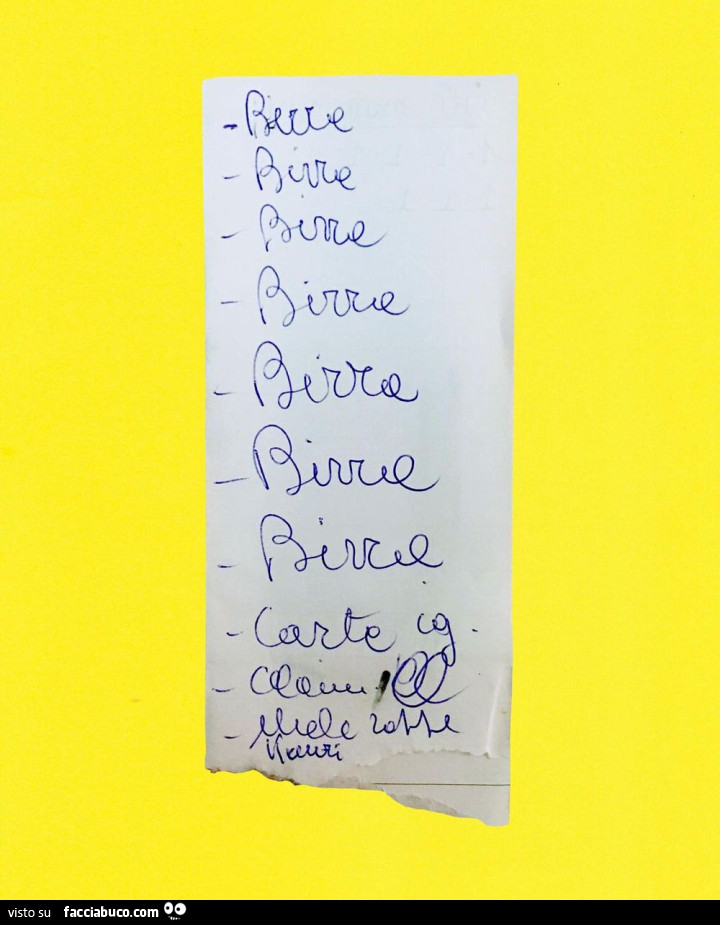 - Birra
- Birra
- Birra
- Birra
- Birra
- Birra
- Birra
- Carta ig.
-
- Mele
visto su facciabuco.com